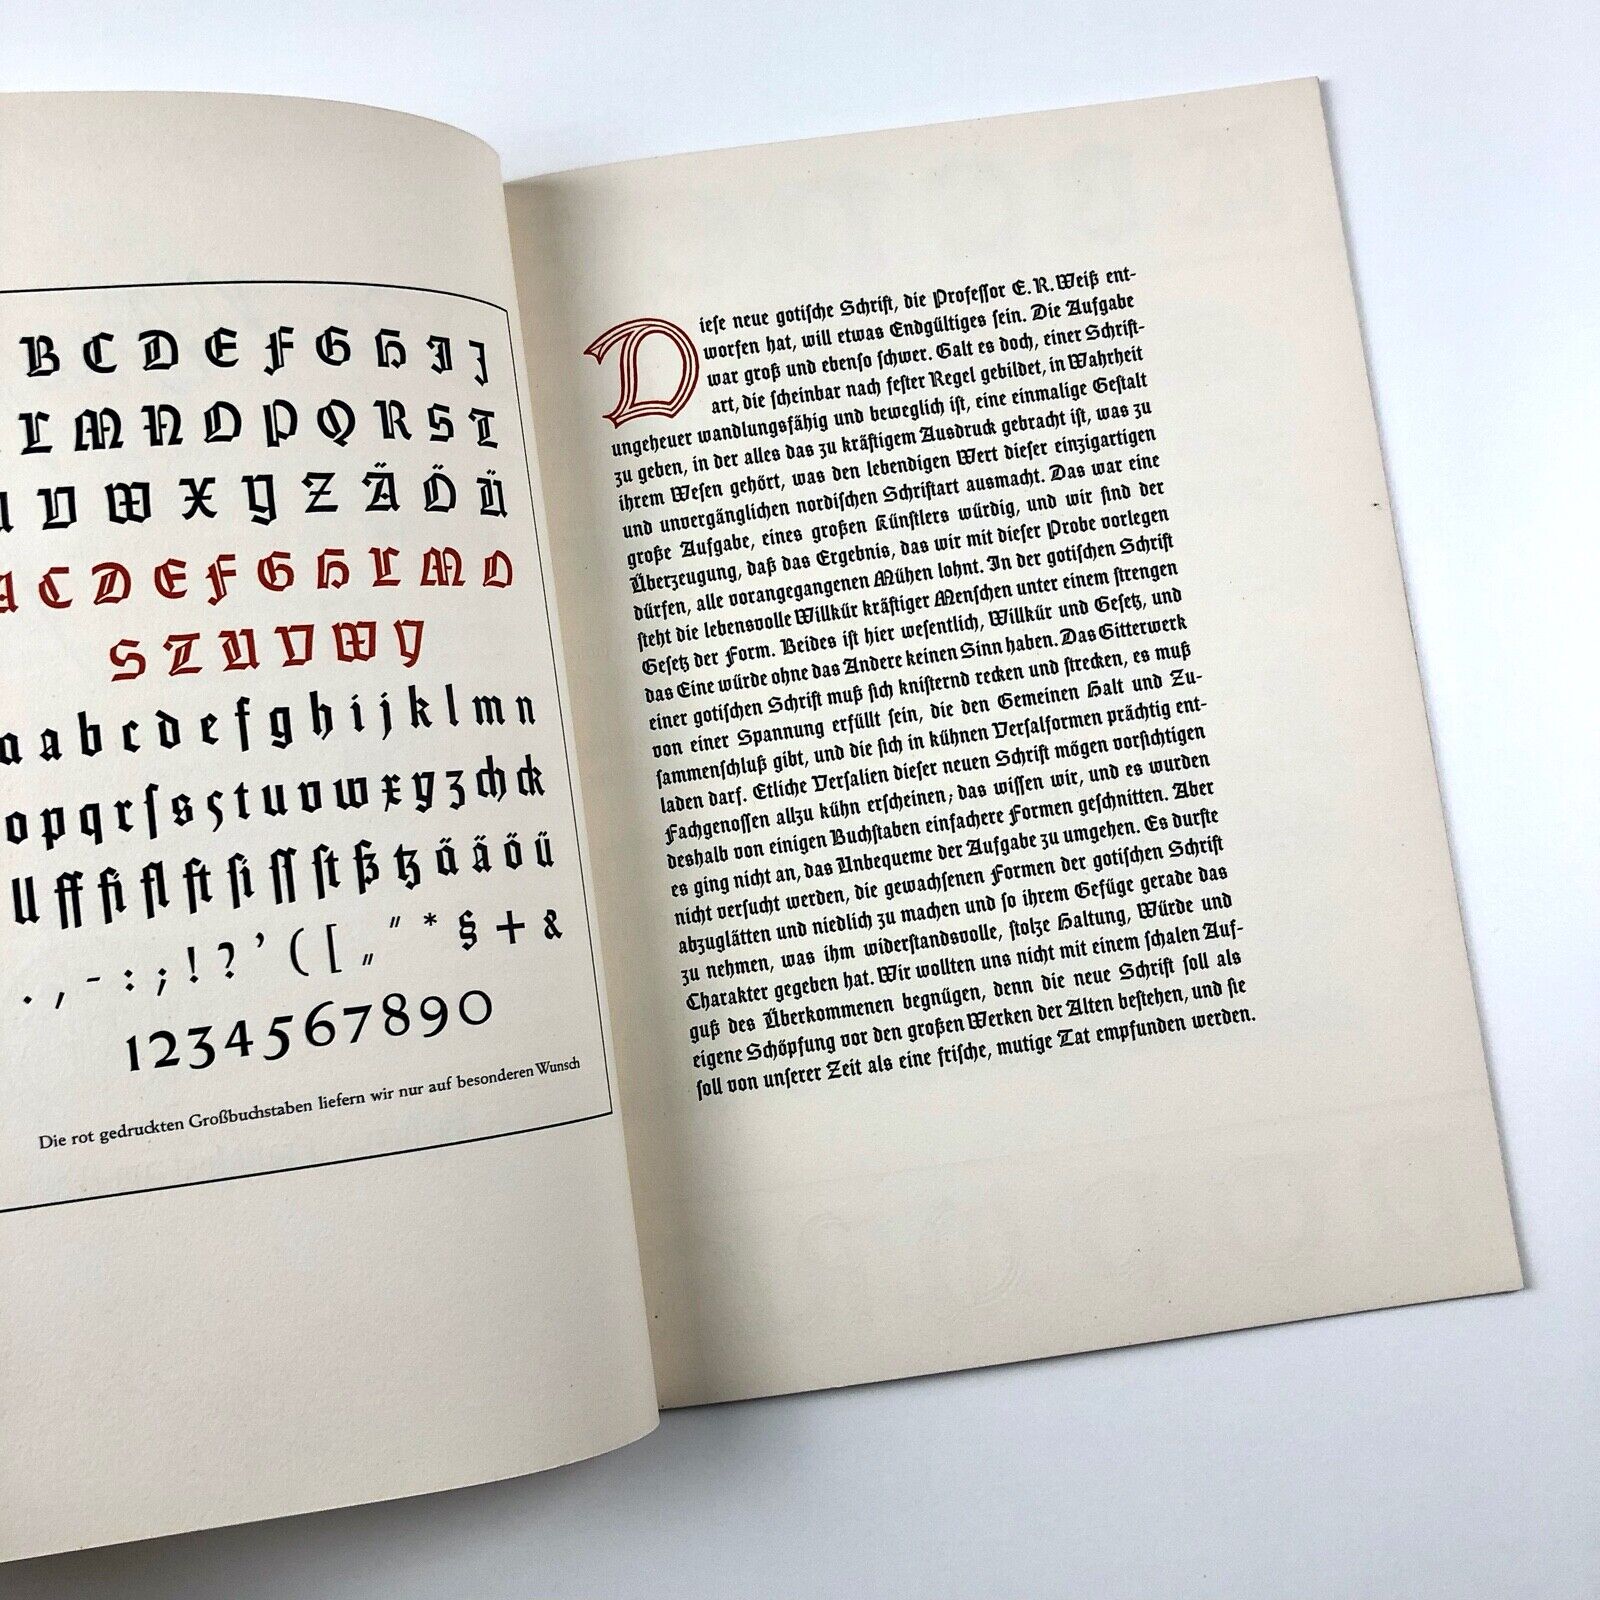 B C D E F G H I J
L M N O P Q R S T
U V W X Y Z Ä Ö Ü
A C D E F G H L M O
S T U V W Y
a a b c d e f g h i j k l m n
o p q r ſ s s t u v w x y z ch ck
ll ff fi fl ft ſi ſſ ſt ß tz ä ä ö ü
. , - : ; ! ? ’ ( [ „ " * § + &
1 2 3 4 5 6 7 8 9 0
Die rot gedruckten Großbuchstaben liefern wir nur auf besonderen Wunsch
Dieſe neue gotiſche Schrift, die Profeſſor E. R. Weiß ent-
worfen hat, will etwas Endgültiges ſein. Die Aufgabe
war groß und ebenſo ſchwer. Galt es doch, einer Schrift-
art, die ſcheinbar nach feſter Regel gebildet, in Wahrheit
ungeheuer wandlungsfähig und beweglich iſt, eine einmalige Geſtalt
zu geben, in der alles das zu kräftigem Ausdruck gebracht iſt, was zu
ihrem Weſen gehört, was den lebendigen Wert dieſer einzigartigen
und unvergänglichen nordiſchen Schriftart ausmacht. Das war eine
große Aufgabe, eines großen Künſtlers würdig, und wir ſind der
Überzeugung, daß das Ergebnis, das wir mit dieſer Probe vorlegen
dürfen, alle vorangegangenen Mühen lohnt. In der gotiſchen Schrift
ſteht die lebensvolle Willkür kräftiger Menſchen unter einem ſtrengen
Geſetz der Form. Beides iſt hier weſentlich, Willkür und Geſetz, und
das Eine würde ohne das Andere keinen Sinn haben. Das Gitterwerk
einer gotiſchen Schrift muß ſich kniſternd recken und ſtrecken, es muß
von einer Spannung erfüllt ſein, die den Gemeinen Halt und Zu-
ſammenſchluß gibt, und die ſich in kühnen Verſalformen prächtig ent-
laden darf. Etliche Verſalien dieſer neuen Schrift mögen vorſichtigen
Fachgenoſſen allzu kühn erſcheinen; das wiſſen wir, und es wurden
deshalb von einigen Buchſtaben einfachere Formen geſchnitten. Aber
es ging nicht an, das Unbequeme der Aufgabe zu umgehen. Es durfte
nicht verſucht werden, die gewachſenen Formen der gotiſchen Schrift
abzuglätten und niedlich zu machen und ſo ihrem Gefüge gerade das
zu nehmen, was ihm widerſtandsvolle, ſtolze Haltung, Würde und
Charakter gegeben hat. Wir wollten uns nicht mit einem ſchalen Auf-
guß des Überkommenen begnügen, denn die neue Schrift ſoll als
eigene Schöpfung vor den großen Werken der Alten beſtehen, und ſie
ſoll von unſerer Zeit als eine friſche, mutige Tat empfunden werden.